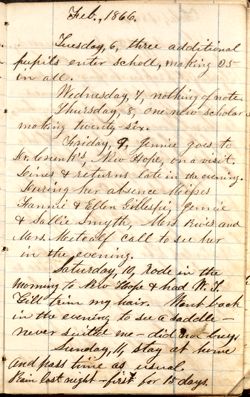 Feb., 1866.
Tuesday, 6, three additional
pupils enter scholl, making 25
in all.
Wednesday, 7, nothing of note.
Thursday, 8, one new scholar
making twenty six.
Friday, 9, Jennie goes to
New Hope, on a visit.
& returns late in the evening.
During her absence Misses
Fannie & Ellen Gillespie, Jennie
& Sallie Smyth, Mrs. Rives and
Mrs. Metcalf call to see her
in the evening.
Saturday, 10, rode in the
morning to New Hope & had W. T.
Gill trim my hair. Went back
in the evening to see a saddle -
never suited me - did not buy.
Sunday, 11, stay at home
and pass time as usual.
Rain last night - first for 15 days.